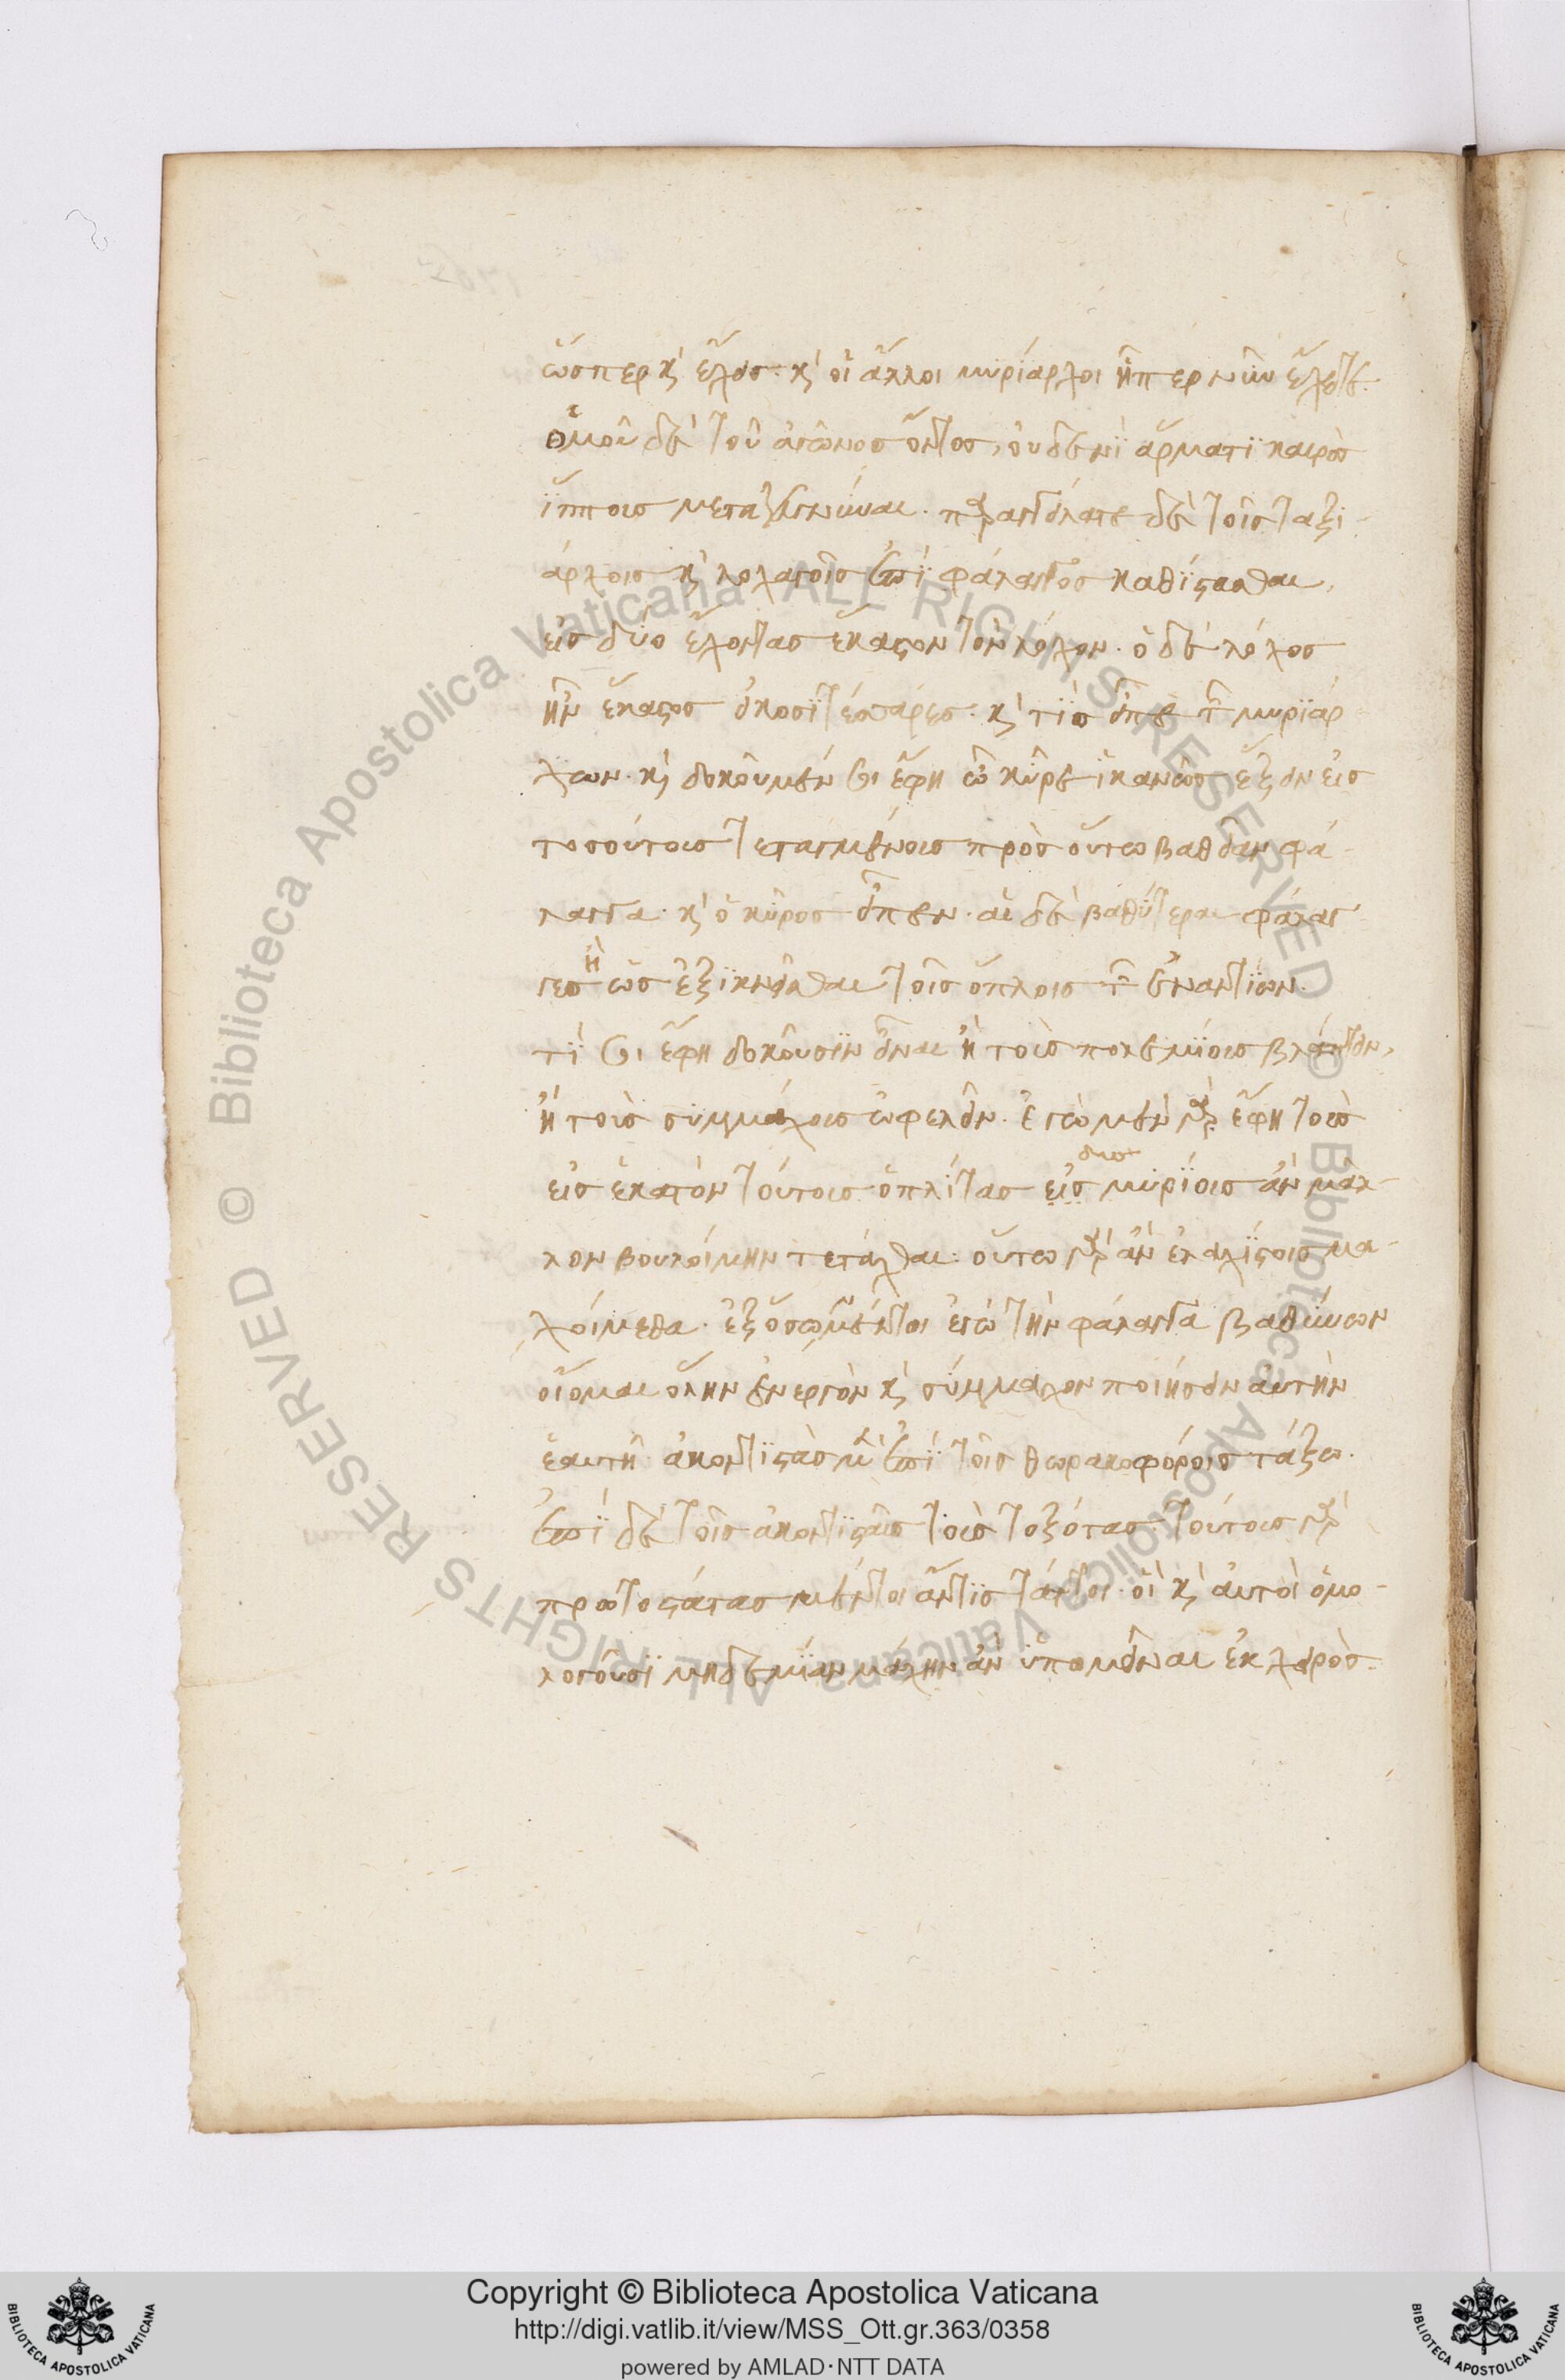 ὥσπερ κ᾽ ἔχεις· κ᾽ οἱ ἄλλοι μυρίαρχοι ᾗπερ νῦν ἔχετε·
ὁμοῦ δὲ τοῦ ἀγῶνος ὄντος, οὐδενὶ ἅρματι καιρὸς
ἵππους μεταζευγνύναι. παραγγείλατε δὲ τοῖς ταξι-
άρχοις κ᾽ λοχαγοῖς ἐπὶ φάλαγγος καθίστασθαι,
εἰς δύο ἔχοντας ἕκαστον τὸν λόχον· ὁ δὲ λόχος
ἦν ἕκαστος εἰκοσιτέσσαρες· κ᾽ τὶς εἶπε τῶν μυριάρ-
χων· κ᾽ δοκοῦμέν σοι ἔφη ὦ κῦρε ἱκανῶς ἕξειν εἰς
τοσούτους τεταγμένοις πρὸς οὕτω βαθεῖαν φά-
λαγγα· κ᾽ ὁ κῦρος εἶπεν· αἱ δὲ βαθύτεραι φάλαγ-
γες ἢ ὡς ἐξικνεῖσθαι τοῖς ὅπλοις τῶν ἐναντίων·
τί σοι ἔφη δοκοῦσιν εἶναι ἢ τοὺς πολεμίους βλάπτειν,
ἢ τοὺς συμμάχους ὠφελεῖν. ἐγὼ μὲν γὰρ ἔφη τοὺς
εἰς ἑκατὸν τούτους ὁπλίτας εἰς δισ μυρίους ἂν μᾶλ-
λον βουλοίμην τετάχθαι· οὕτω γὰρ ἂν ἐλαχίστοις μα-
χοίμεθα· ἐξ ὅσων μέντοι ἐγὼ τὴν φάλαγγα βαθύνων
οἴομαι ὅλην ἐνεργὸν κ᾽ σύμμαχον ποιήσειν αὐτὴν
ἑαυτῇ· ἀκοντιστὰς μὲν ἐπὶ τοῖς θωρακοφόροις τάξω·
ἐπὶ δὲ τοῖς ἀκοντισταῖς τοὺς τοξότας· τούτους γὰρ
πρωτοστάτας μέντοι ἄν τις τάττοι· οἳ κ᾽ αὐτοὶ ὁμο-
λογοῦσι μηδεμίαν μάχην ἂν ὑπομεῖναι ἐκ χειρὸς·
Copyright © Biblioteca Apostolica Vaticana
http://digi.vatlib.it/view/MSS_Ott.gr.363/0358
powered by AMLAD·NTT DATA
BIBLIOTECA APOSTOLICA VATICANA
BIBLIOTECA APOSTOLICA VATICANA
© Biblioteca Apostolica Vaticana ALL RIGHTS RESERVED
© Biblioteca Apostolica Vaticana ALL RIGHTS RESERVED